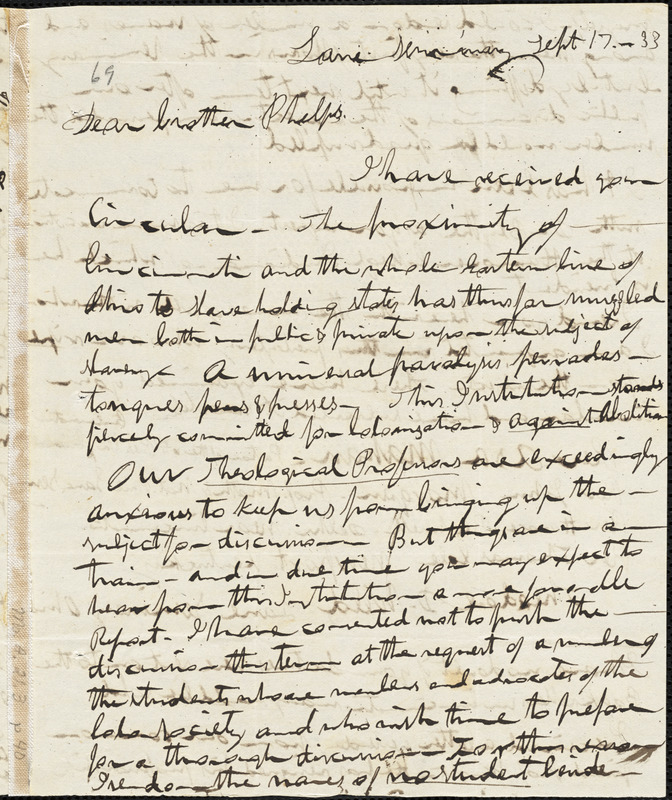 Lane Seminary Sept 17. - 33
69
Dear brother Phelps.
I have received your
Circular - The proximity of
Cincinnati and the whole Eastern line of
Ohio to slave holding states has thus far muzzled
men both in public & private upon the subject of
slavery. A universal paralysis pervades -
tongues pens & presses - This Institution stands
fiercely committed for Colonization & against Abolition
Our Theological Professors are exceedingly
anxious to keep us from bringing up the -
subject for discussion - But things are in a -
train - and in due time you may expect to
hear from this Institution a more favorable
Report - I have consented not to push the -
discussion this term at the request of a number of
the students who are members and advocates of the
Colo. Society and who wish time to prepare
for a thorough discussion - For this reason
I send on the names of no student beside -